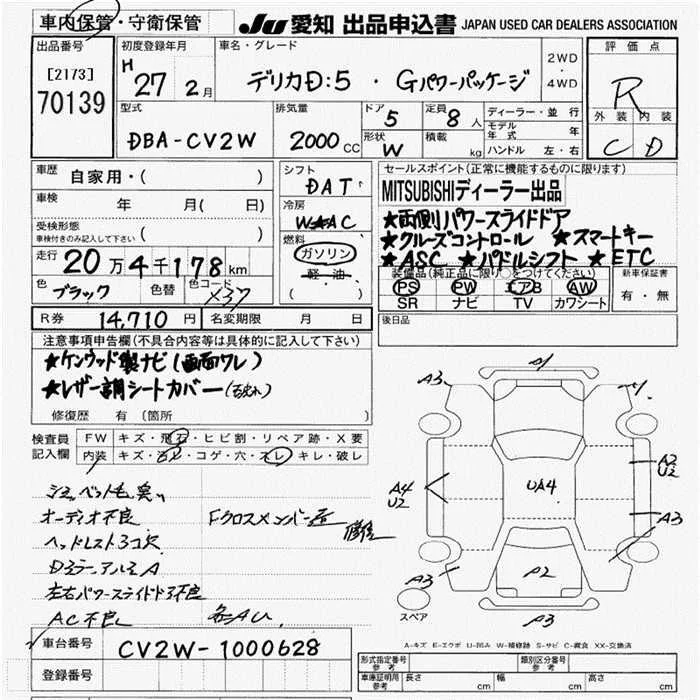 車内保管・守衛保管 JU 愛知 出品申込書 JAPAN USED CAR DEALERS ASSOCIATION
出品番号 初度登録年月 車名・グレード 評価点
[2173] 70139 H 27 2月 デリカD:5 ・ Gパワーパッケージ 2WD・4WD R
型式 排気量 ドア 定員 ディーラー・並行 外装 内装
DBA-CV2W 2000cc 5 8人 モデル年式 年 C D
形状 W 積載 kg ハンドル 左・右
車歴 自家用・( ) シフト DAT セールスポイント(正常に機能するものに限ります)
車検 年 月( 日) 冷房 AC MITSUBISHIディーラー出品
受検形態 車検付きのみ記入して下さい ( ) 燃料 ガソリン 軽・油 ( )
★両側パワースライドドア
★クルーズコントロール ★スマートキー
★ASC ★パドルシフト ★ETC
走行 20万4千178km
色 ブラック 色替 色コード X37
装備品(純正品に限り○をつけてください) 新車保証書
PS PW エアB AW 有・無
SR ナビ TV カワシート
R券 14,710円 名変期限 月 日 後日品
注意事項申告欄(不具合内容等は具体的に記入して下さい)
★ケンウッド製ナビ(画面ワレ)
★レザー調シートカバー
修復歴 有 (箇所 )
検査員記入欄 FW キズ・飛石・ヒビ割・リペア跡・X要
内装 キズ・ヨゴレ・コゲ・穴・スレ・キレ・破レ
オーディオ不良 Fクロスメンバー
ヘッドレスト3コ欠
左右パワースライドドア不良
AC不良 各AU
車台番号 CV2W-1000628
登録番号
A3 A1
A4 U2 UA4 A2 U2
A3
A3 A2
スペア A3
A-キズ E-エクボ U-凹み W-補修跡 S-サビ C-腐食 XX-交換済
形式指定番号 参考 類別区分番号 参考
車庫証明用 参考 長さ cm 幅 cm 高さ cm